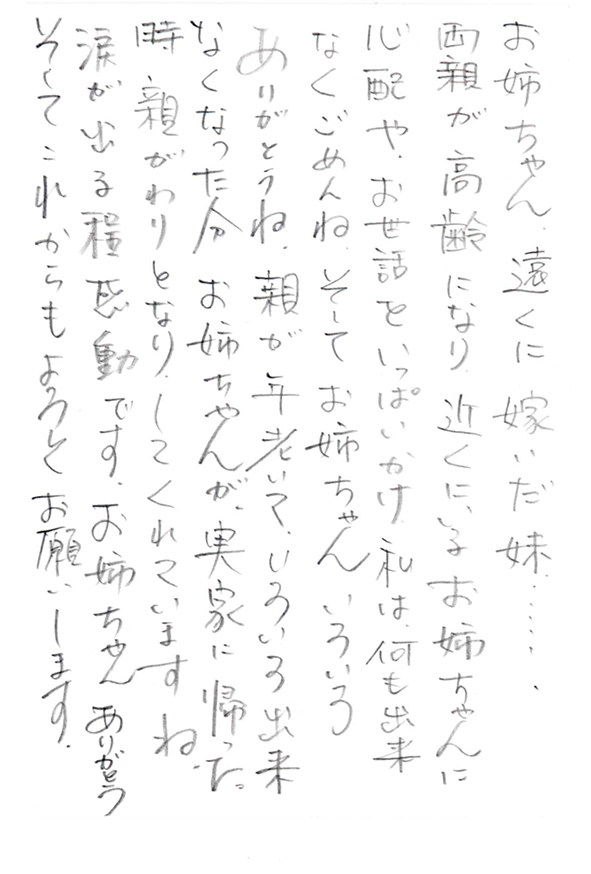 お姉ちゃん、遠くに嫁いだ妹‥‥‥。
両親が高齢になり、近くにいるお姉ちゃんに
心配や、お世話をいっぱいかけ、私は、何も出来
なくごめんね。そしてお姉ちゃん いろいろ
ありがとうね。親が年老いて、いろいろ出来
なくなった分 お姉ちゃんが、実家に帰った
時 親がわりとなり、してくれていますね。
涙が出る程感動です。お姉ちゃん ありがとう
そしてこれからもよろしくお願いします。